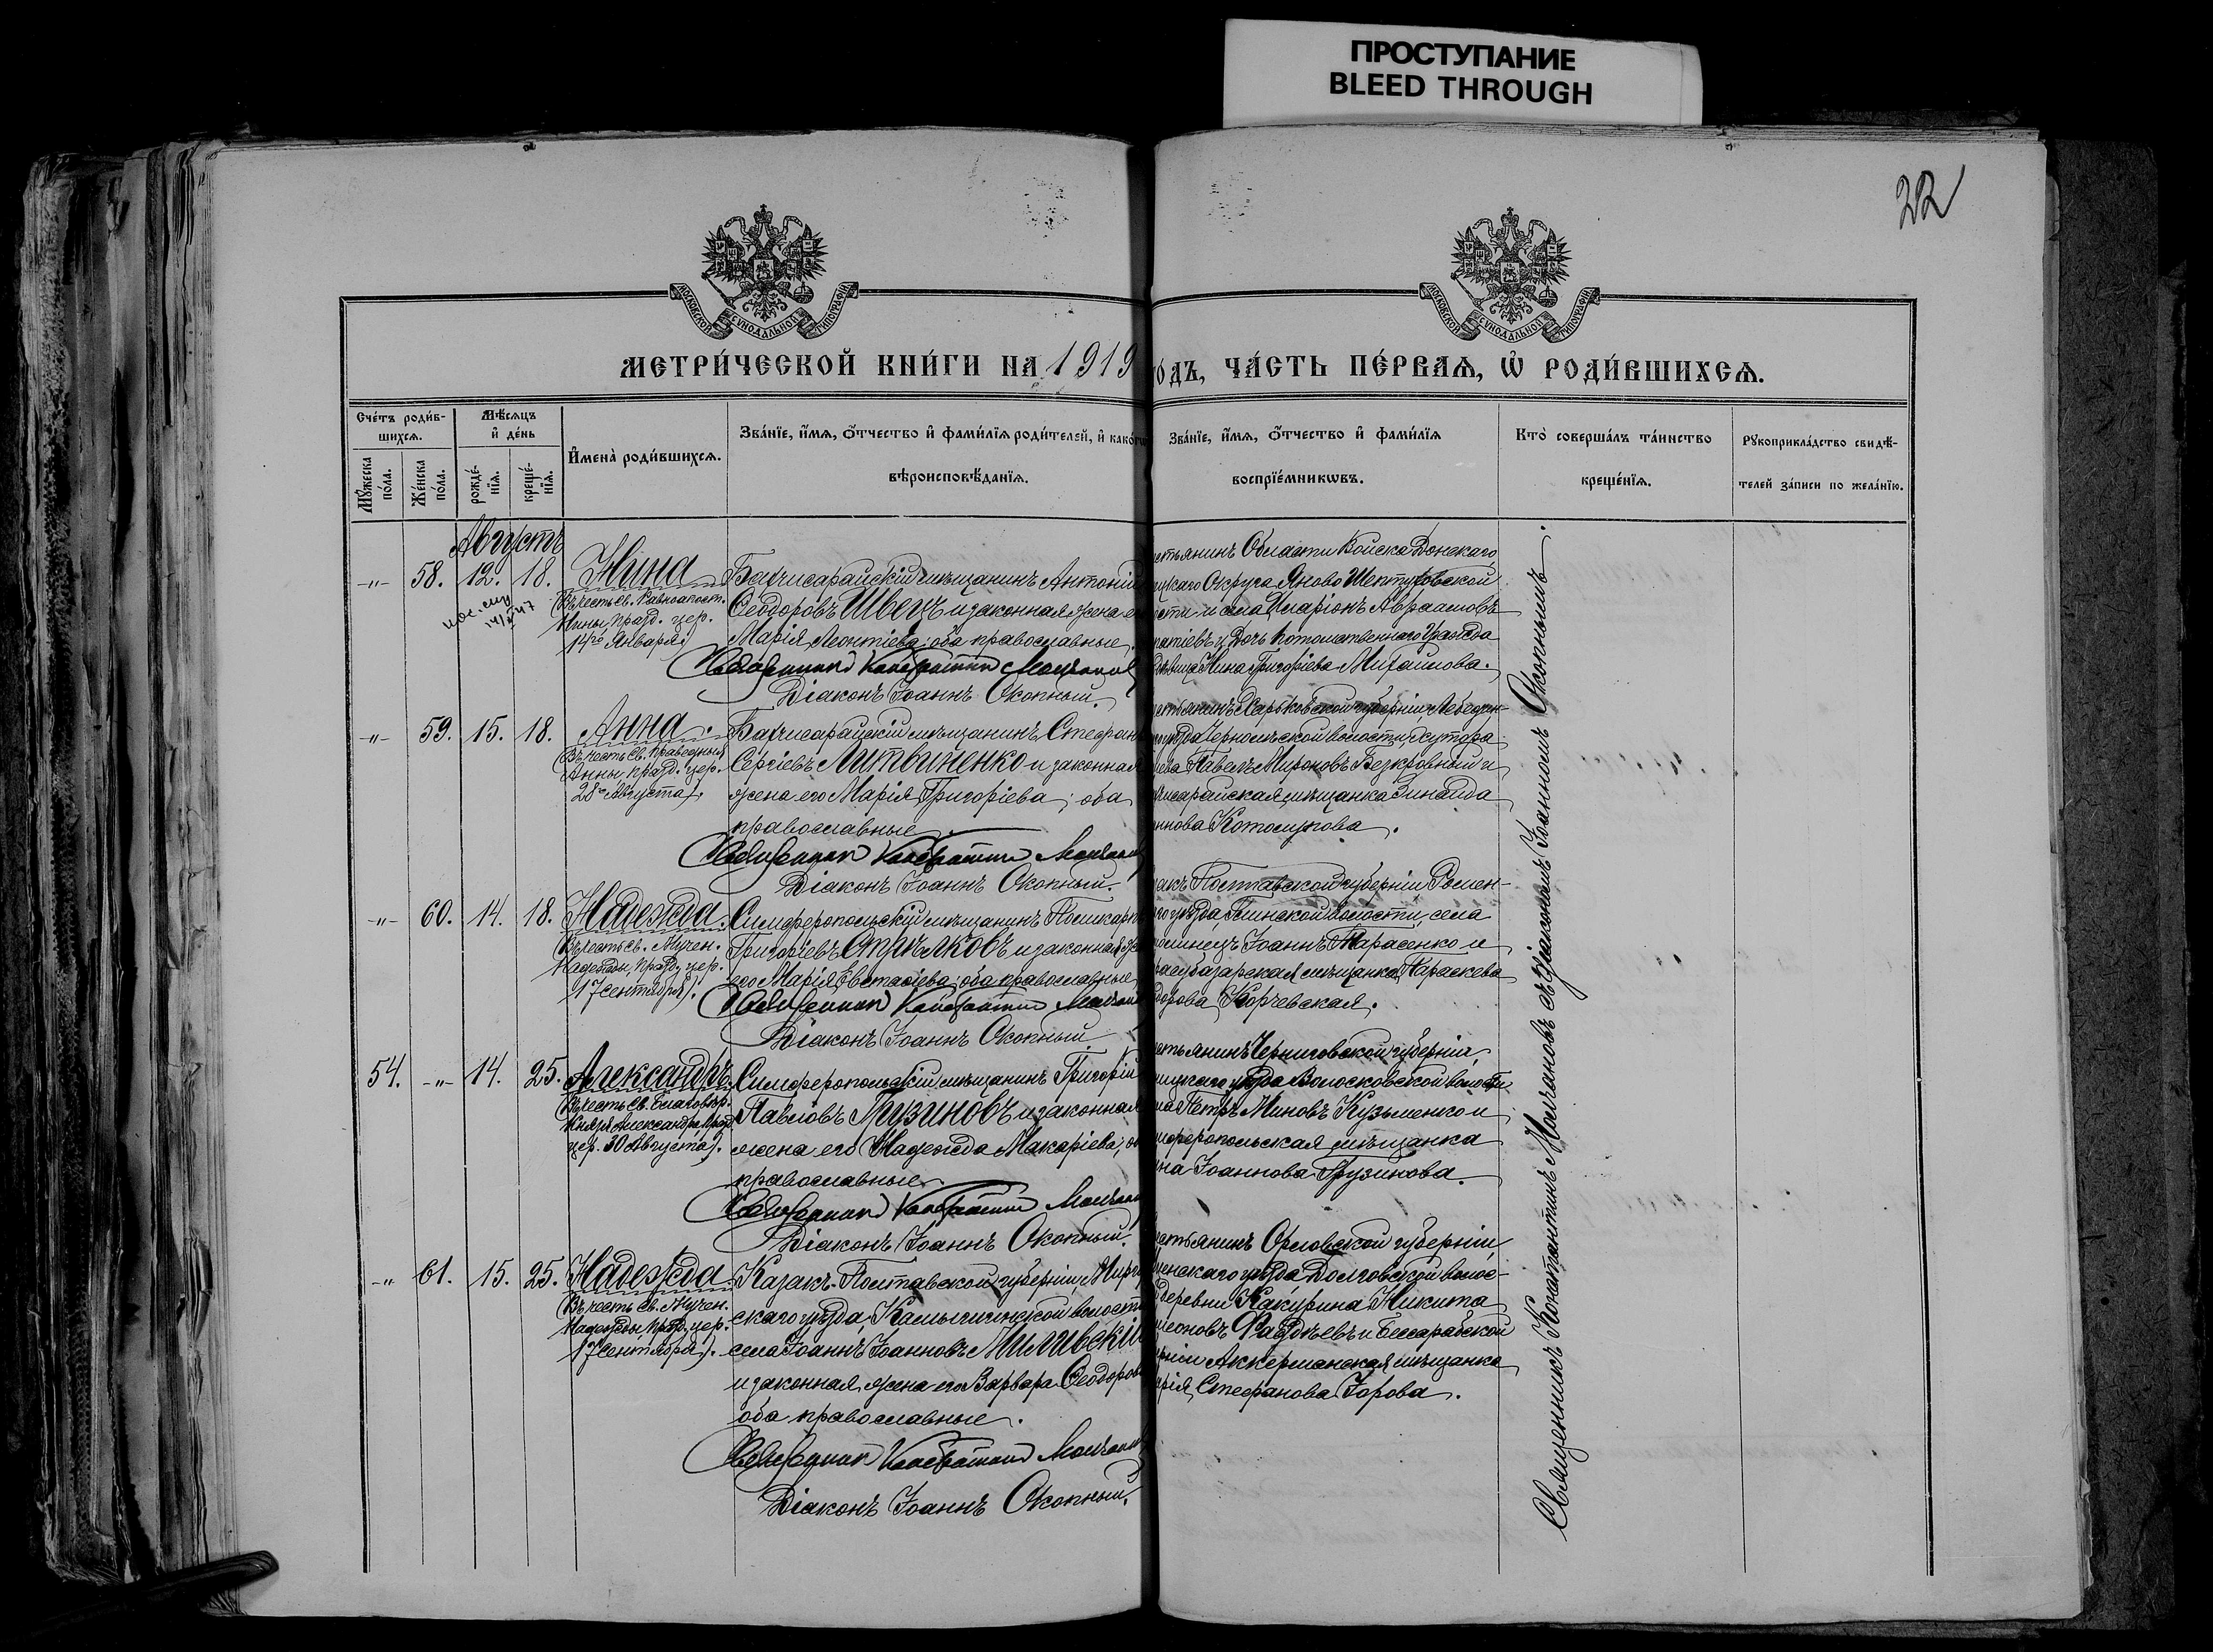 ПРОСТУПАНИЕ
BLEED THROUGH
22
МОСКОВСКОЙ СѴНОДАЛЬНОЙ ТИПОГРАФІИ
МОСКОВСКОЙ СѴНОДАЛЬНОЙ ТИПОГРАФІИ
МЕТРИ́ЧЕСКОЙ КНИ́ГИ НА 1919
О́ДЪ, ЧА́СТЬ ПЕ́РВАѦ, Ѡ҆ РОДИ́ВШИХСѦ.
Сче́тъ роди́в-
шихсѧ.
Мѣ́сѧцъ
и҆ де́нь
Мꙋ́жеска по́ла.
Же́нска по́ла.
рожде́-нїѧ.
креще́-нїѧ.
И҆мена̀ роди́вшихсѧ.
Зва́нїе, и҆́мѧ, ѻ҆́тчество и҆ фами́лїѧ роди́телей, и҆ како́гѡ
вѣроисповѣ́данїѧ.
Зва́нїе, и҆́мѧ, ѻ҆́тчество и҆ фами́лїѧ
воспрїе́мникѡвъ.
Кто̀ соверша́лъ та́инство
креще́нїѧ.
Рꙋкоприкла́дство свидѣ́-
телей за́писи по жела́нїю.
Августъ
-"- 58. 12. 18. Нина
Въ честь Св. Равноапост.
Нины, празд. цер.
14го Января)
Бахчисарайскій мѣщанинъ Антоній
Ѳеодоровъ Швецъ и законная жена е
Марія Леонтіева; оба православные.
Священникъ Константинъ Молчанов
Діаконъ Іоаннъ Окопный.
естьянинъ Области Войска Донскаго,
цкаго Округа Яново Шептуховской
ости и села Иларіонъ Авраамовъ
патіевъ и Дочь потомственнаго Гражда
дѣвица Нина Григоріева Михайлова.
-"- 59. 15. 18. Анна.
(Въ честь Св. Праведныя
Анны, празд. цер.
28го Августа).
Бахчисарайскій мѣщанинъ Стефан
Сергіевъ Литвиненко и законная
жена его Марія Григоріева; оба
православные.
Священникъ Константинъ Молчан
Діаконъ Іоаннъ Окопный.
естьянинъ Харьковской губерніи, Лебедин-
уѣзда волости, хутора
ева Павелъ Мироновъ Безкровный и
чисарайская мѣщанка Зинаида
ннова Котолупова.
-"- 60. 14. 18. Надежда.
(Въ честь Св. Мучен.
Надежды, празд. цер.
17 Сентября).
Симферопольскій мѣщанинъ Поликарп
Григоріевъ Стрѣлковъ и законная ж
его Марія Евстафіева; оба православные
Священникъ Константинъ Молчан
Діаконъ Іоаннъ Окопный
акъ Полтавской губерніи Ромен-
го уѣзда, Глинской волости, села
Іоаннъ Тарасенко и
расубазарская мѣщанка Параскева
дорова Корчевская.
54. -"- 14. 25. Александръ
(Въ честь Св. Благовѣр.
Князя Александра, празд.
цер. 30 Августа).
Симферопольскій мѣщанинъ Григорій
Павловъ Грузиновъ и законная
жена его Надежда Макаріева; о
православные.
Священникъ Константинъ Молчан
Діаконъ Іоаннъ Окопный.
естьянинъ Черниговской губерніи,
ницкаго уѣзда Волосковской волости
ла Петръ Миновъ Кузьменко и
мферопольская мѣщанка
на Іоаннова Грузинова.
-"- 61. 15. 25. Надежда
(Въ честь Св. Мучен.
Надежды, празд. цер.
17 Сентября).
Казакъ Полтавской губерніи, Мирго
скаго уѣзда, Камышинской волости
села Іоаннъ Іоанновъ Миливскій
и законная жена его Варвара Ѳеодоров
оба православные.
Священникъ Константинъ Молчан
Діаконъ Іоаннъ Окопный.
естьянинъ Орловской губерніи,
ценскаго уѣзда Долговской волос-
деревни Какурина Никита
меоновъ Фаддѣевъ и Бессарабской
рніи Аккерманская мѣщанка
рія Стефанова Горова.
Священникъ Константинъ Молчановъ съ діакономъ Іоанномъ Окопнымъ.